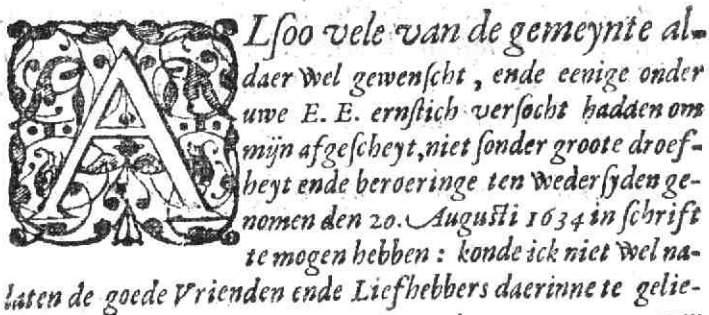 ALſoo vele van de gemeynte al-
daer wel gewenſcht, ende eenige onder
uwe E. E. ernſtich verſocht hadden om
mijn afgeſcheyt, niet ſonder groote droef-
heyt ende beroeringe ten wederſyden ge-
nomen den 20. Auguſti 1634 in ſchrift
te mogen hebben : konde ick niet wel na-
laten de goede Vrienden ende Liefhebbers daerinne te gelie-